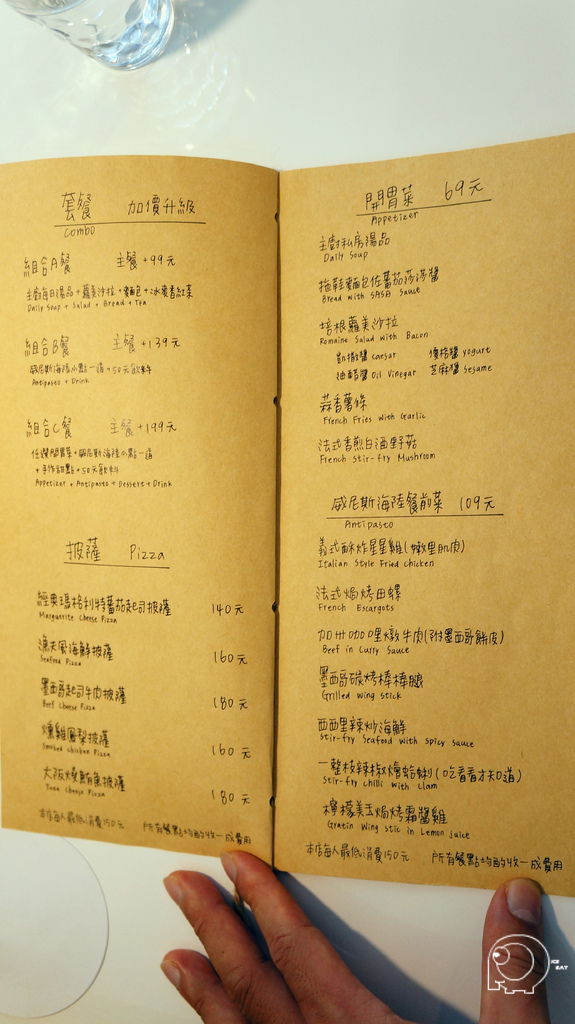 套餐 加價升級
Combo
組合A餐 主餐+99元
主廚每日湯品+蘿美沙拉+麵包+冰麥香紅茶
Daily Soup + Salad + Bread + Tea
組合B餐 主餐+139元
威尼斯海陸小點一道+50元飲料
Antipasto + Drink
組合C餐 主餐+199元
任選開胃菜+威尼斯海陸小點一道
+手作甜點+50元飲料
Appetizer + Antipasto + Dessert + Drink
披薩 Pizza
經典瑪格利特蕃茄起司披薩 140元
Marguerite Cheese Pizza
漁夫風海鮮披薩 160元
Seafood Pizza
墨西哥起司牛肉披薩 180元
Beef Cheese Pizza
燻雞鳳梨披薩 160元
Smoked Chicken Pizza
大阪燒鮪魚披薩 180元
Tuna Cheese Pizza
本店每人最低消費150元 所有餐點均酌收一成費用
開胃菜 69元
Appetizer
主廚私房湯品
Daily Soup
拖鞋麵包佐蕃茄莎莎醬
Bread with SASA Sauce
培根蘿美沙拉
Romaine Salad with Bacon
凱撒醬 Caesar 優格醬 Yogurt
油醋醬 Oil Vinegar 芝麻醬 Sesame
蒜香薯條
French Fries with Garlic
法式香煎白酒野菇
French Stir-fry Mushroom
威尼斯海陸餐前菜 109元
Antipasto
義式酥炸星星雞(檄里肌肉)
Italian Style Fried Chicken
法式焗烤田螺
French Escargots
加州咖哩燉牛肉(附墨西哥餅皮)
Beef in Curry Sauce
墨西哥碳烤棒棒腿
Grilled Wing Stick
西西里辣炒海鮮
Stir-fry Seafood with Spicy Sauce
一整枝辣椒燴蛤蜊(吃看看才知道)
Stir-fry Chilli with Clam
檸檬美玉焗烤霜醬雞
Gratin Wing Stic in Lemon Juice
本店每人最低消費150元 所有餐點均酌收一成費用
ICE
EAT